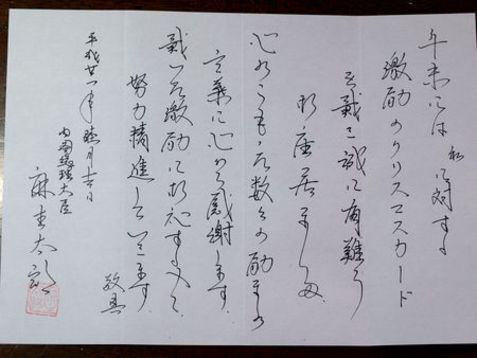 年末には 私に対する
激励のクリスマスカード
を戴き 誠に有難う
御座居ました
心のこもった数々の励ましの
言葉に心から感謝します
戴いた激励に
努力精進して
敬具
平成廿一年 月 日
内閣総理大臣
麻生太郎